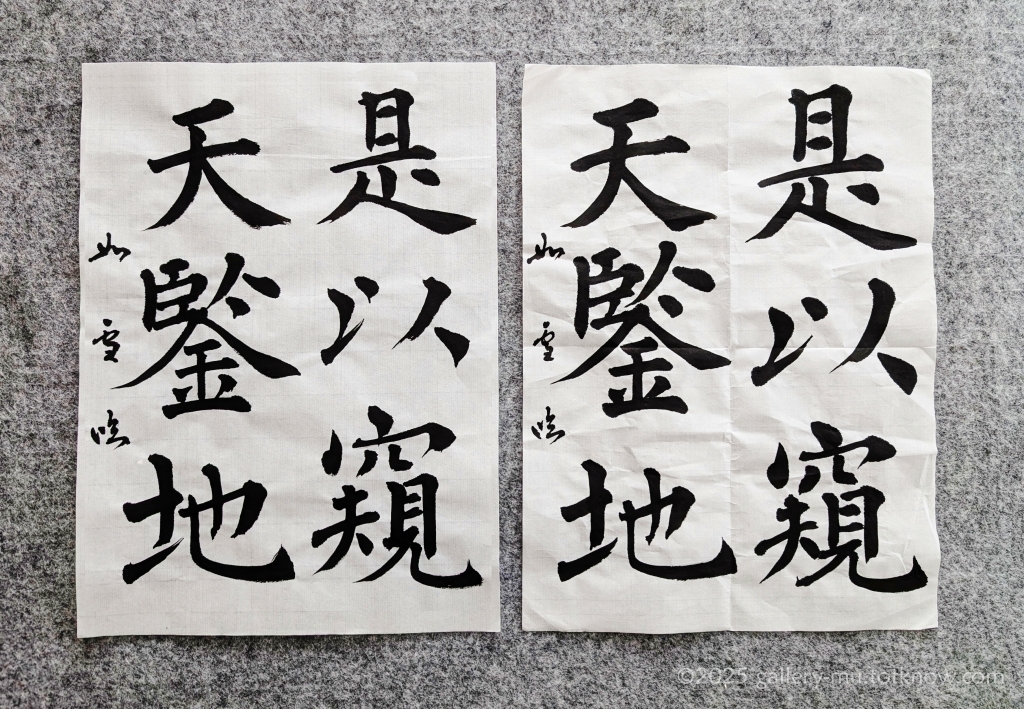 是以窺
天鑒地
如雪臨
是以窺
天鑒地
如雪臨
©2025 gallery-mu.fotknow.com